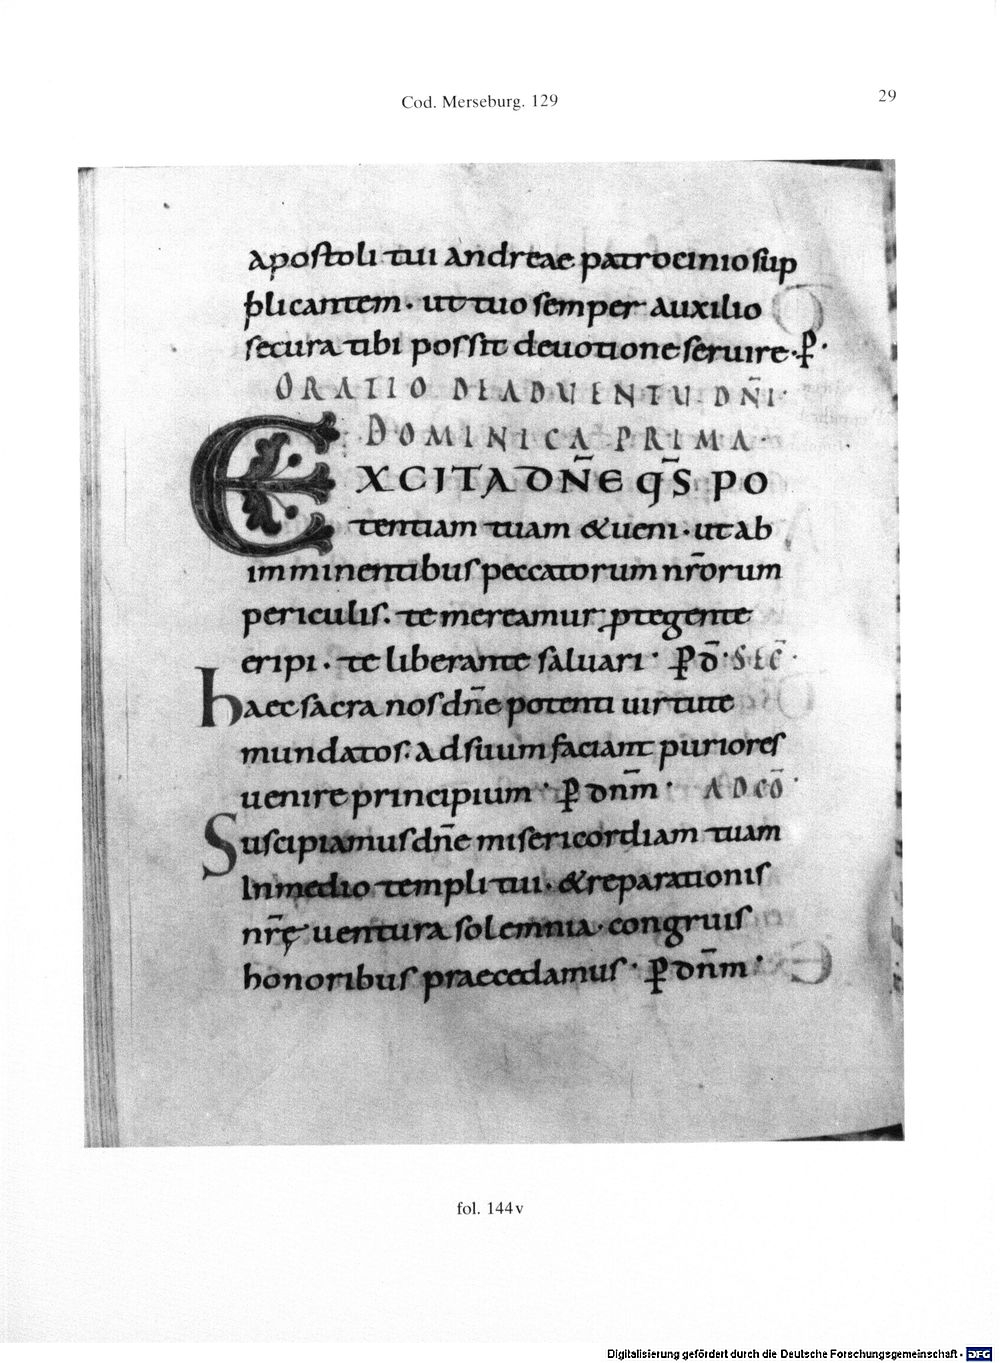 Cod. Merseburg. 129
29
apostoli tui andreae patrocinio sup
plicantem · ut tuo semper auxilio
secura tibi possit deuotione seruire · ꝑ ·
ORATIO DE ADUENTU DÑI ·
DOMINICA PRIMA ·
EXCITA DÑE QS̄ PO
tentiam tuam & ueni · ut ab
imminentibus peccatorum nr̄orum
periculis · te mereamur ꝓtegente
eripi · te liberante saluari · ꝑ d̄ · SEC̄ ·
haec sacra nos dn̄e potenti uirtute
mundatos · ad suum faciant puriores
uenire principium · ꝑ dnm̄ · AD CŌ ·
Suscipiamus dn̄e misericordiam tuam
In medio templi tui · & reparationis
nr̄ę uentura solemnia · congruis
honoribus praecedamus · ꝑ dn̄m ·
fol. 144v
Digitalisierung gefördert durch die Deutsche Forschungsgemeinschaft - DFG